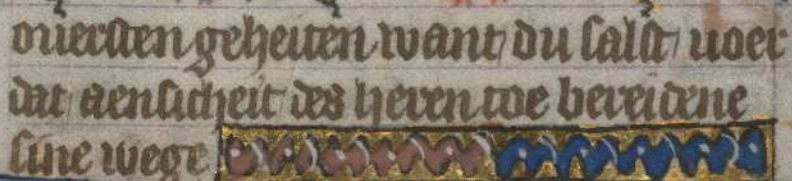 ouersten geheiten want du salst uoer
dat aensicheit des heren toe bereidene
sine wege